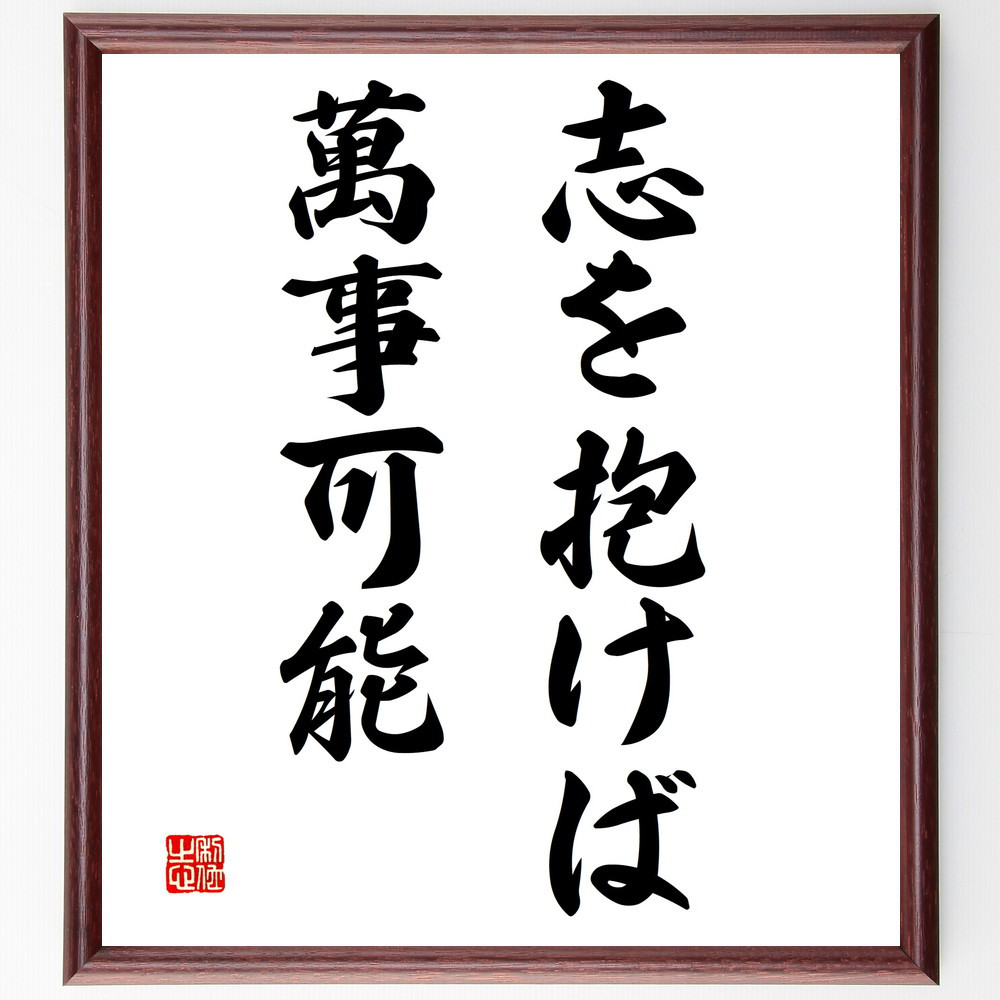 志を抱けば
萬事可能